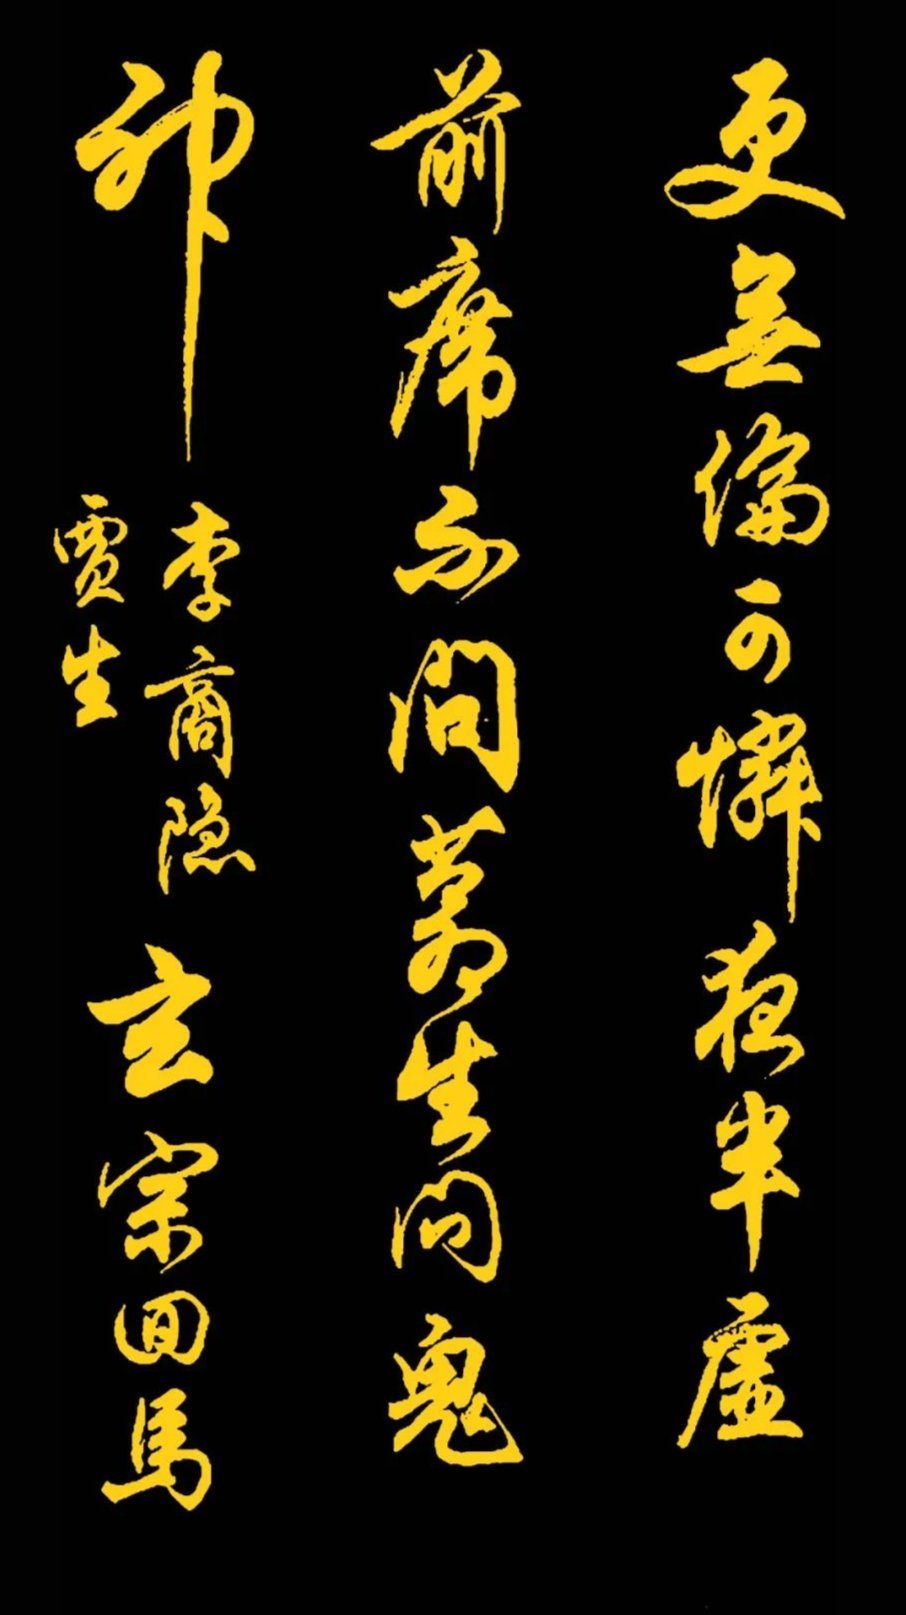 更無倫可憐夜半虚
前席不問蒼生問鬼
神
李商隐
贾生
玄宗回馬